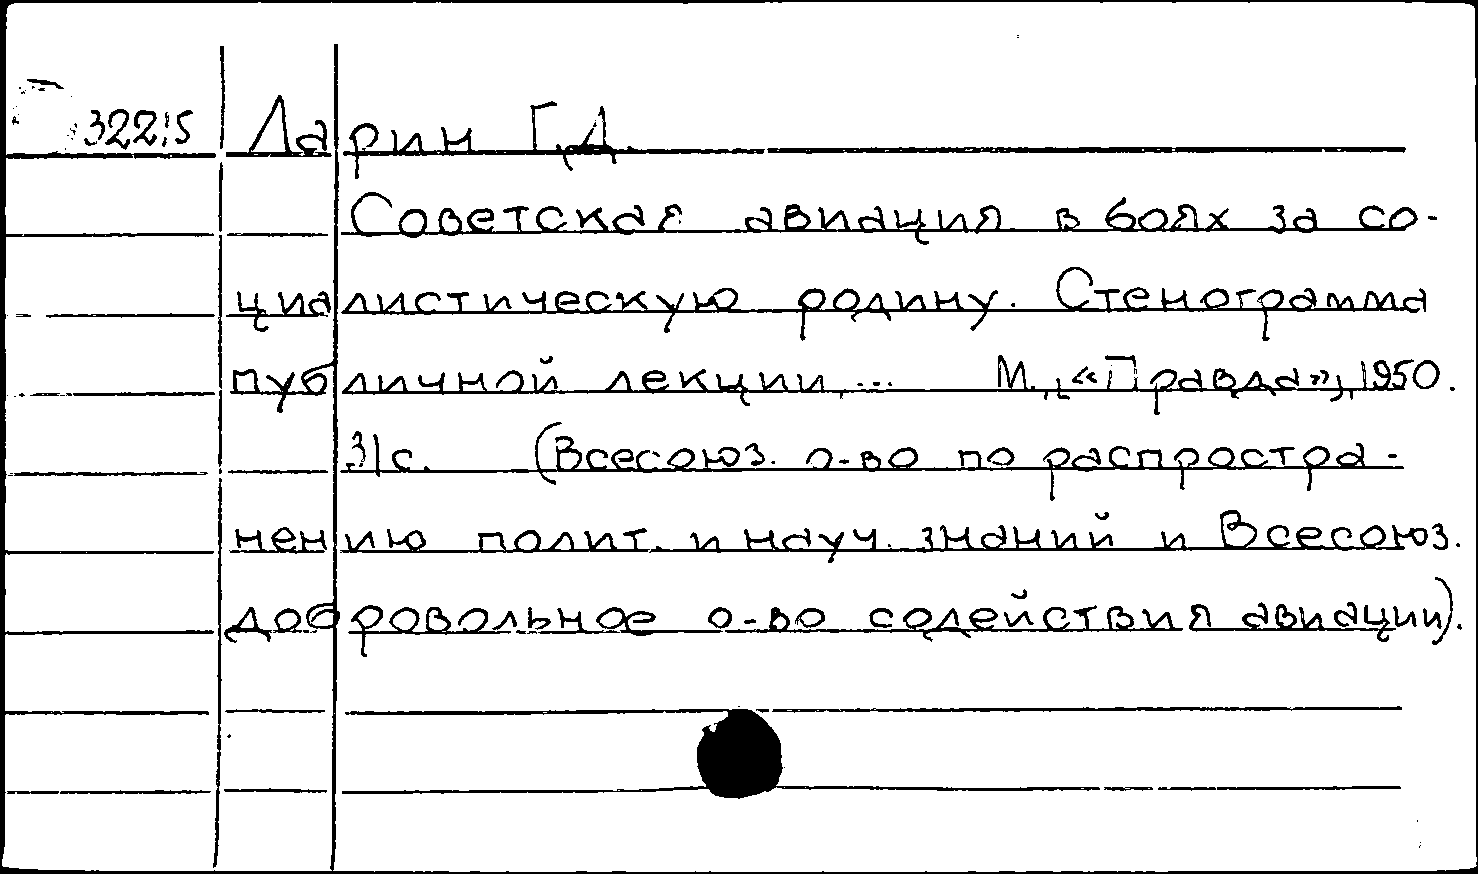 32215 Ларин Г.Д.
Советская авиация в боях за со-
циалистическую родину. Стенограмма
публичной лекции,... М., «Правда», 1950.
31с. (Всесоюз. о-во по распростра-
нению полит. и науч. знаний и Всесоюз.
добровольное о-во содействия авиации).